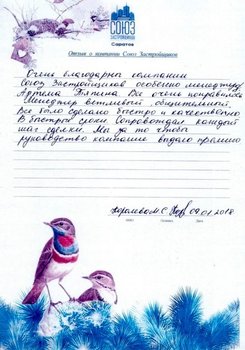 СОЮЗ
ЗАСТРОЙЩИКОВ
Саратов
Отзыв о компании Союз Застройщиков
Очень благодарна компании
Союз Застройщиков особенно менеджеру
Артема Тяпина. Все очень понравилось
Менеджер вежливый, общительный.
Все было сделано быстро и качественно
В быстрые сроки Сопровождал каждый
шаг сделки. Мы за то чтобы
руководство компании выдало премию
09.01.2018